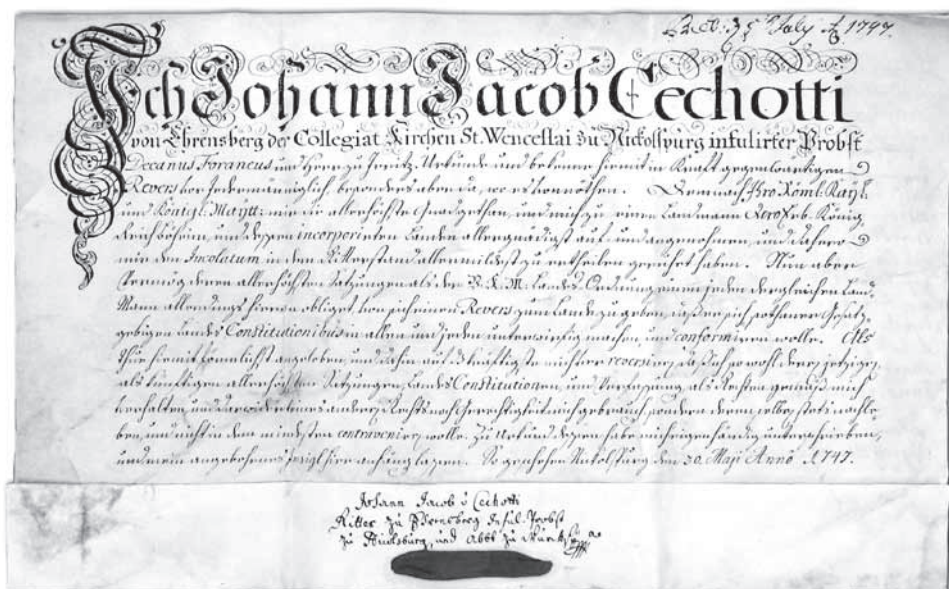 5 July Ao 1747.
Ich Johann Jacob Cechotti
von Ehrensberg der Collegiat Kirchen St. Wencellai zu Nickolspurg infulirter Probst
Decanus Foraneus und Herr zu Urkunde und bekenne hiemit in Krafft gegenwärtigen
Revers vor jedermänniglich, besonders aber da, wo es vonnöthen. Demnach Ihro Röml. Kayl.
und Königl. Maytt: mir die allerhöchste Gnad gethan, und mich zu einen Landmann Dero Erb-König
reich Böheim, und dessen incorporirten Landen allergnädigst auf- und angenohmen, und dahero
mir den Incolatum in dem Ritterstand allermildest zu ertheilen geruhet haben. Nun aber
Vermög deren allerhöchsten Satzungen als der R. K. M: Landes Ordnung einen jeden dergleichen Land
Mann allerdings hieran obliget, von sich einen Revers zum Lande zu geben, daß er sich, sothaner Gesatz
gebigen Landes Constitutionibus in allen und jeden unterwürfig machen, und conformiren wolle. Als
Thue hiemit angeloben, und dahin auf das kräftigste mich reversire, daß ich sowohl deren jetzigen,
als künftigen allerhöchsten Satzungen, Landes Constitutionen, und Verfassung, als Rechten gemäß mich
verhalten, und darwider keines anderen Rechts noch Gerechtigkeit mich gebrauch, sondern deren selben stets nachle
ben, und nicht in dem mindesten contraveniren wolle. Zu Urkund dessen habe mich eigenhändig unterschrieben,
und mein angebohrnes Insigl hier anhangen lassen. So geschehen Nikolspurg den 30 Maji Anno 1747.
Johann Jacob v Cechotti
Ritter zu Ehrensberg Inful. Probst
zu Nicolsburg, und Abbt zu